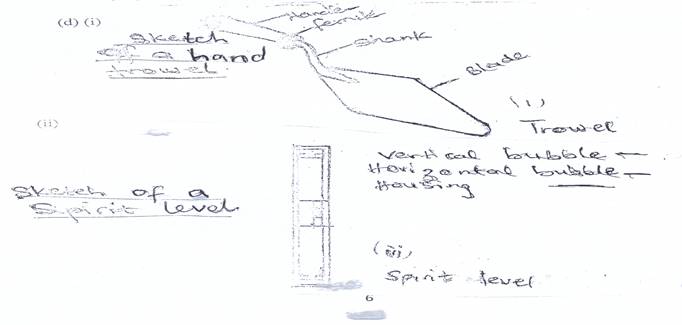 (d) (i)
Sketch
of a hand
trowel.
Handle
ferrule
Shank
Blade
(i)
Trowel
(ii)
Sketch of a
Spirit level
vertical bubble
Horizontal bubble
Housing
(ii)
Spirit level
6